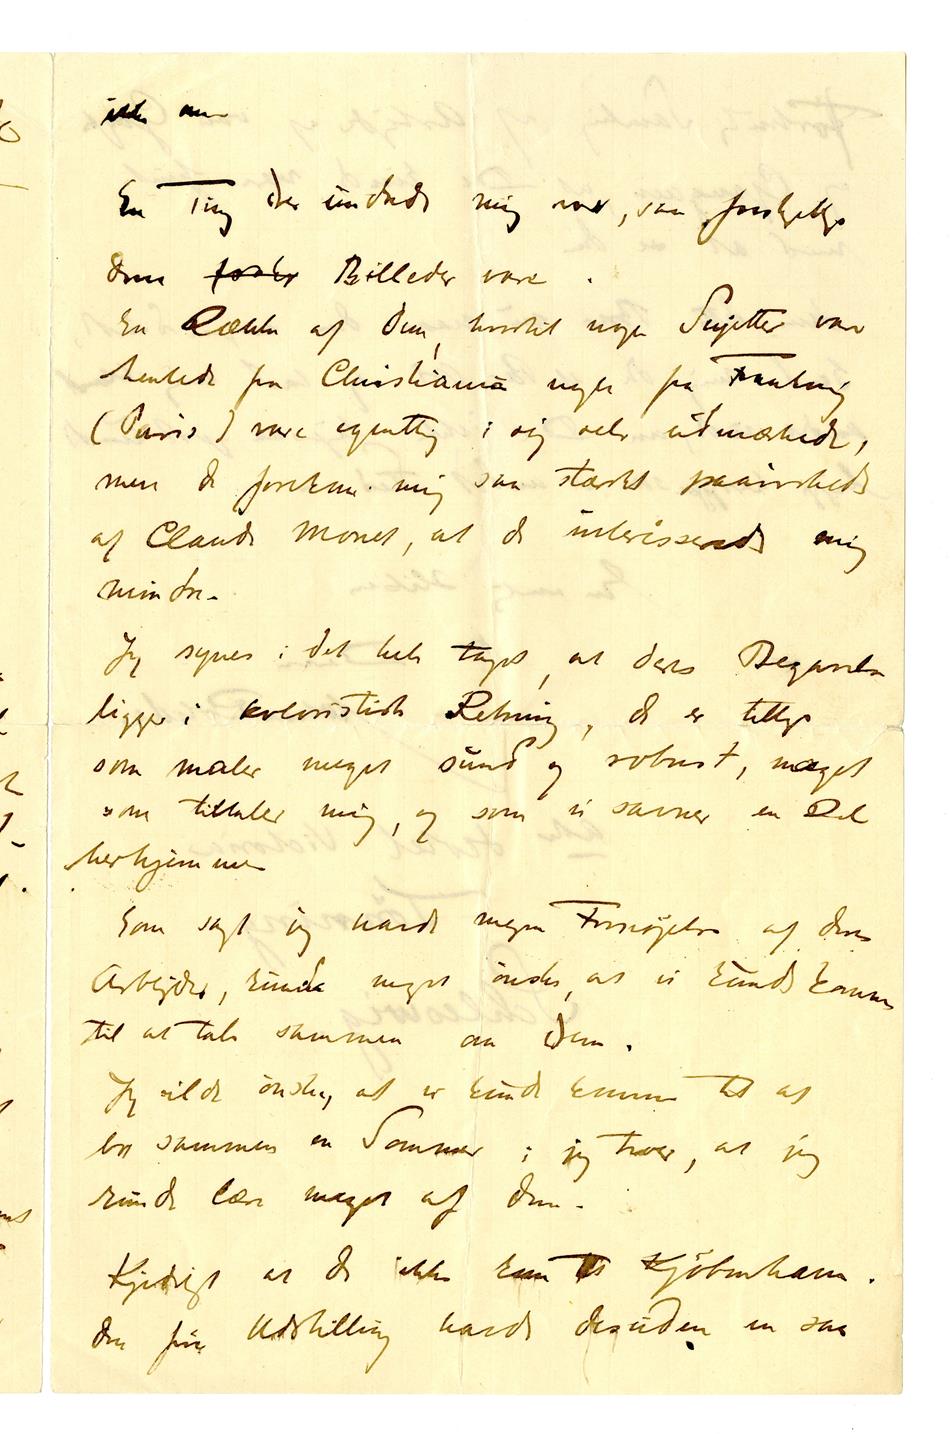 ikke om
En Ting der undrede mig var, saa forskjellige
deres Billeder vare.
En Række af dem, hvortil nogle Sujetter var
hentede fra Christiania nogle fra Frankrig
(Paris) vare egentlig i sig selv udmærkede,
men de forekom mig saa stærkt paavirkede
af Claude Monet, at de interesserede mig
mindre.
Jeg synes i det hele taget, at deres Begavelse
ligger i koloristisk Retning, de er tillige
som maler meget sund og robust, noget
som tiltaler mig, og som vi savner en Del
herhjemme
Som sagt jeg havde megen Fornøjelse af deres
Arbejder, kunde noget ønske, at vi kunde komme
til at tale sammen om dem.
Jeg vilde ønske, at vi kunde komme til at
bo sammen en Sommer; jeg troer, at jeg
kunde lære meget af dem.
Kjedeligt at De ikke kom til Kjøbenhavn.
den frie Udstilling havde desuden en saa